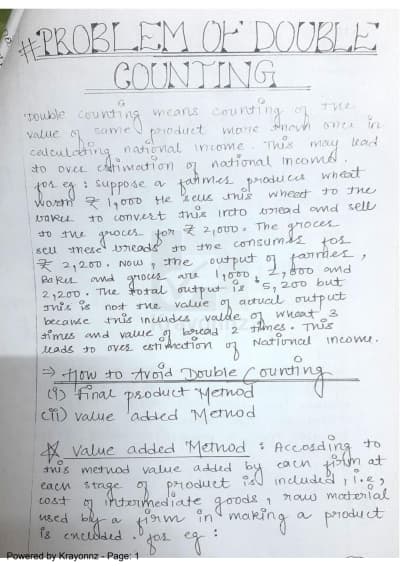 #PROBLEM OF DOUBLE
COUNTING
Double counting means counting of the
value of same product more than once in
calculating national income. This may lead
to over estimation of national income.
for eg : suppose a farmer produces wheat
worth ₹ 1,000 He sells this wheat to the
baker to convert this into bread and sell
to the grocer for ₹ 2,000. The grocer
sell these breads to the consumer for
₹ 2,200. Now, the output of farmer,
Baker and grocer are 1,000, 2,000 and
2,200. The total output is 5,200 but
this is not the value of actual output
because this includes value of wheat 3
times and value of bread 2 times. This
leads to over estimation of National income.
⇒ How to Avoid Double Counting
(i) Final product Method
(ii) value added Method
☆ Value added Method : According to
this method value added by each firm at
each stage of product is included, i.e,
cost of intermediate goods, raw material
used by a firm in making a product
is excluded. for eg :
Powered by Krayonnz - Page: 1